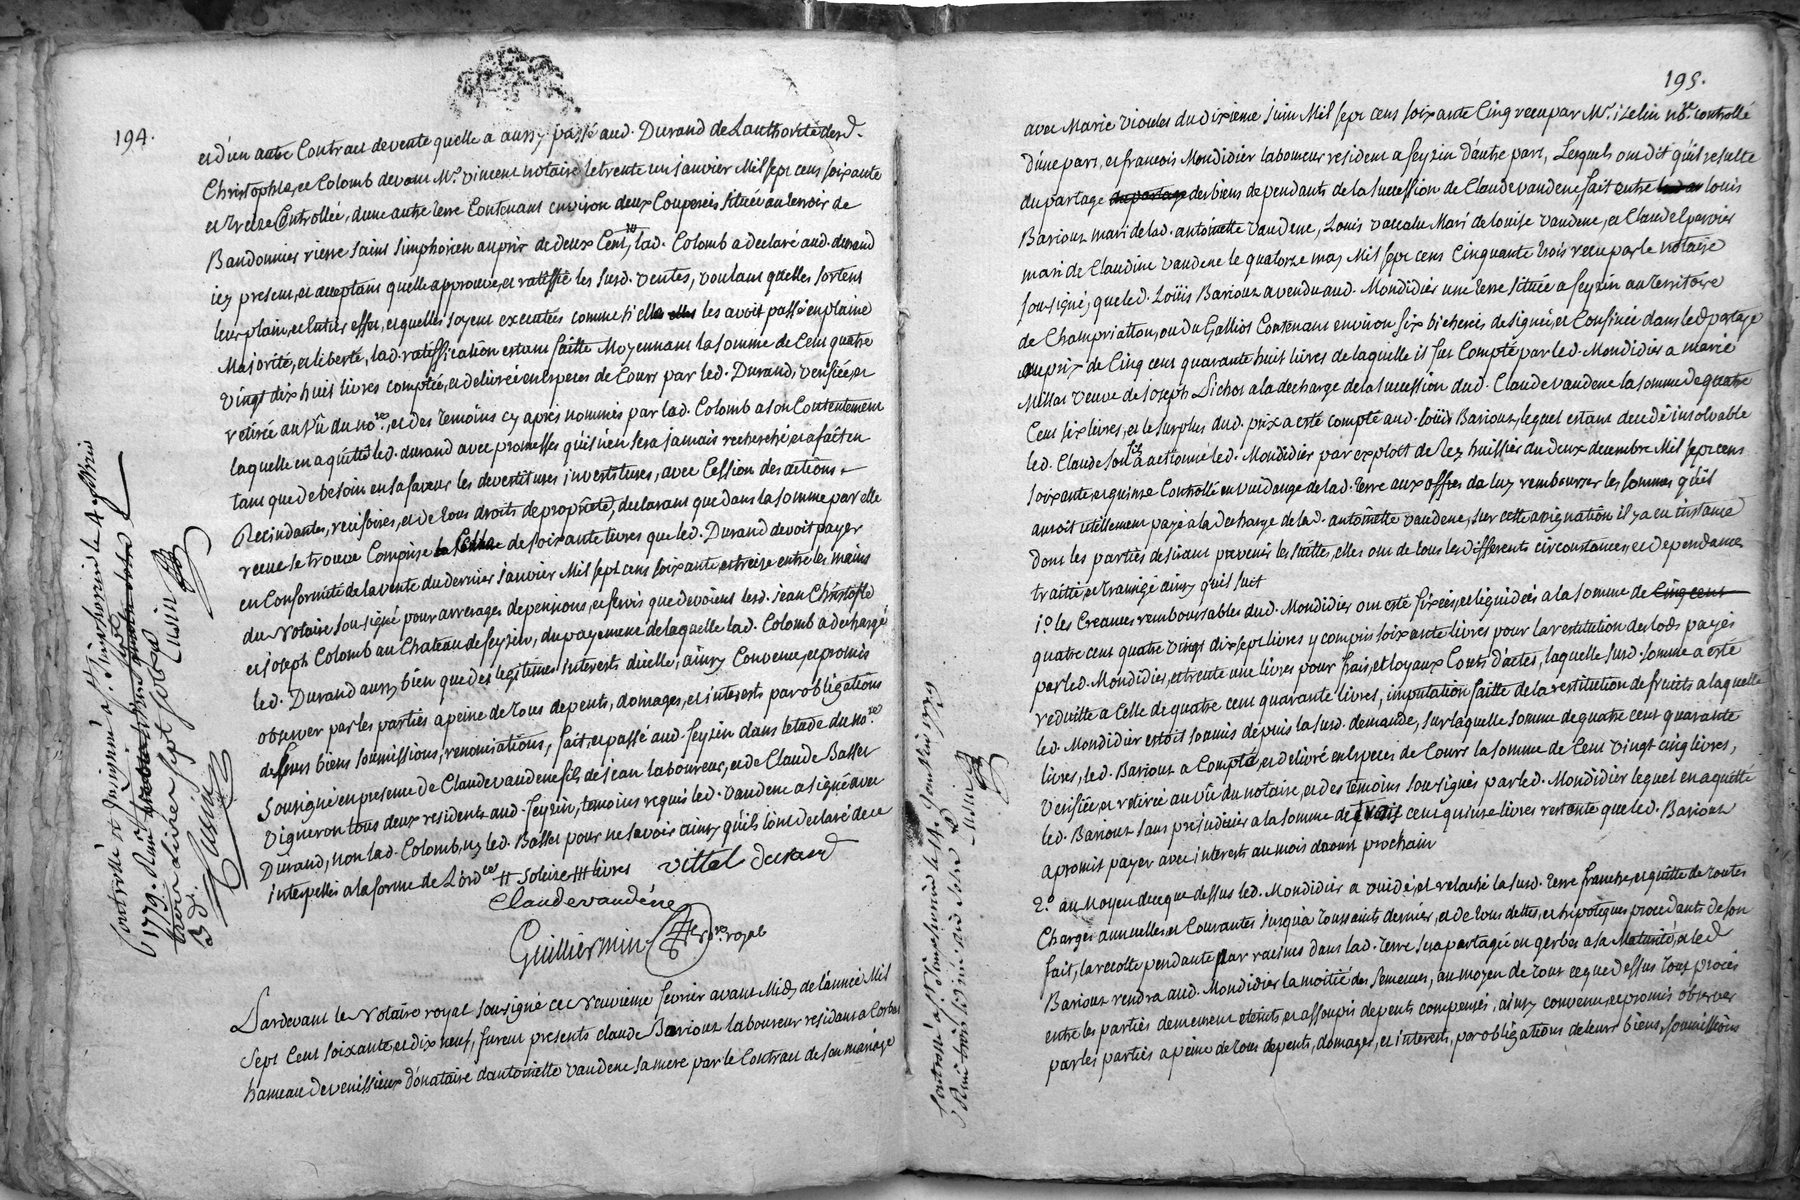 194.
et d'un autre Contract de vente quelle a aussy passé aud. Durand de Lauthorité desd.
Christophle, et Colomb devant Mr. vincent notaire le trente un janvier Mil sept cens soixante
et treize Controllée, dune autre terre Contenant environ deux Couperées Située au terroir de
Bandonnier riere saint simphorien au prix de deux Cent, lad. Colomb a declaré aud. durand
icy present, et acceptant quelle approuve, et ratiffie les susd. ventes, voulant quelles sortent
leur plain, et entier effet, et quelles soyent executées comme si elle les avoit passé en plaine
Majorité, et liberté, lad. ratiffication estant faitte Moyennant la somme de Cent quatre
vingt dix huit livres comptée, et delivrée en Especes de Cours par led. Durand, verifiée, et
retirée au vû du nore, et des temoins cy apres nommés par lad. Colomb a son Contentement
laquelle en a quitté led. durand avec promesses qu'il n'en sera jamais recherché, et a fait en
tant que de besoin en sa faveur les devestitures investitures, avec Cession des actions
Recindantes, recisoires, et de tous droits de propriété, declarant que dans la somme par elle
recue se trouve Comprise la Celle de soixante livres que led. Durand devoit payer
en Conformité de la vente du dernier janvier Mil sept cens soixante et treize entre les mains
du Notaire sousigné pour arrerages de pensions, et servis que devoient lesd. jean Christofle
et joseph Colomb au Chateau de feyzin, du payement de laquelle lad. Colomb a dechargé
led. Durand aussy bien que des legitimes Interests dicelle; ainsy Convenu, et promis
observer par les parties a peine de tous depents, domages, et interests par obligations
de leurs biens soumissions, renonciations, fait, et passé aud. feyzin dans letude du nore.
Sousigné en presence de Claude vaudene fils de jean laboureur, et de Claude Ballet
Vigneron tous deux residents aud. feyzin, temoins requis led. vaudene a signé avec
Durand, non lad. Colomb, ny led. Ballet pour ne savoir ainsy qu'ils l'ont declaré de ce
interpellés a la forme de L'ordce
vittal durand
Claude vaudéne
Guilliermin nre royal
Pardevant le Notaire royal sousigné ce Neuvieme fevrier avant Midy de l'année Mil
Sept Cent soixante et dix neuf, furent presents claude Bariout laboureur residant a Corbas
hameau de venissieux donataire d'antoinette vaudene sa mere par le Contract de son mariage
Controllé et Insinué a St. Simphorien le 4 fevrier
1779. Reçu
195.
avec Marie violeles du dixieme juin Mil sept cens soixante Cinq recu par Mr. izelin nre. controllé
d'une part, et francois Mondidier laboureur resident a feyzin d'autre part, Lesquels ont dit qu'il resulte
du partage du partage des biens dependants de la succession de Claude vaudene, fait entre louis
Bariout mari de lad. antoinette vaudene, Louis Mari de louise vaudene, et Claude
mari de Claudine vaudene le quatorze may Mil sept cens Cinquante trois recu par le notaire
sousigné, que led. Loüis Bariout a vendu aud. Mondidier une terre située a feyzin au territoire
de Champriatton, ou du Galliot Contenant environ six bicherées designée, et Confinée dans led. partage
au prix de Cinq cent quarante huit livres de laquelle il fut Compté par led. Mondidier a marie
Millat veuve de joseph Pichot a la decharge de la succession dud. Claude vaudene la somme de quatre
Cent six livres, et le surplus dud. prix a esté compté aud. loüis Bariout, lequel estant decedé insolvable
led. Claude son fils a actionné led. Mondidier par exploit de Rey huissier du deux decembre Mil sept cens
soixante, et quinze Controllé en vuidange de lad. terre aux offres de luy rembourser les sommes qu'il
auroit utillement payé a la decharge de lad. antoinette vaudene, sur cette assignation il y a eu instance
dont les parties desirant prevenir les suittes, elles ont de tous les differents circonstances, et dependances
traitté, et transigé ainsy quil suit
1o. les Creances remboursables dud. Mondidier ont esté fixées, et liquidées a la somme de Cinq cent
quatre cent quatre vingt dix sept livres y compris soixante livres pour la restitution des lods payés
par led. Mondidier, et trente une livres pour frais, et loyaux Couts d'actes, laquelle susd. somme a esté
reduitte a Celle de quatre cent quarante livres, imputation faitte de la restitution de fruits a laquelle
led. Mondidier estoit soumis depuis la susd. demande, sur laquelle somme de quatre cent quarante
livres, led. Bariout a Compté, et delivré en Especes de Cours la somme de Cent vingt cinq livres,
Verifiée, et retirée au vû du notaire, et des temoins sousignés par led. Mondidier lequel en a quitté
led. Bariout sans prejudicier a la somme de trois cent quinze livres restante que led. Bariout
a promit payer avec interests au mois d'aoust prochain
2o. au Moyen de ce que dessus led. Mondidier a vuidé, et relaché la susd. terre franche, et quitte de toutes
Charges annuelles, et Courantes jusqu'a toussaints dernier, et de tous dettes, et hipoteques procedants de son
fait, la recolte pendante par racines dans lad. terre sera partagée en gerbes a sa Maturité, et led
Bariout rendra aud. Mondidier la moitié des semences, au moyen de tout ce que dessus tout procés
entre les parties demeurent eteints, et assoupis depents compensés, ainsy convenu, et promis observer
par les parties a peine de tous depents, domages, et interests, par obligations de leurs biens, soumissions